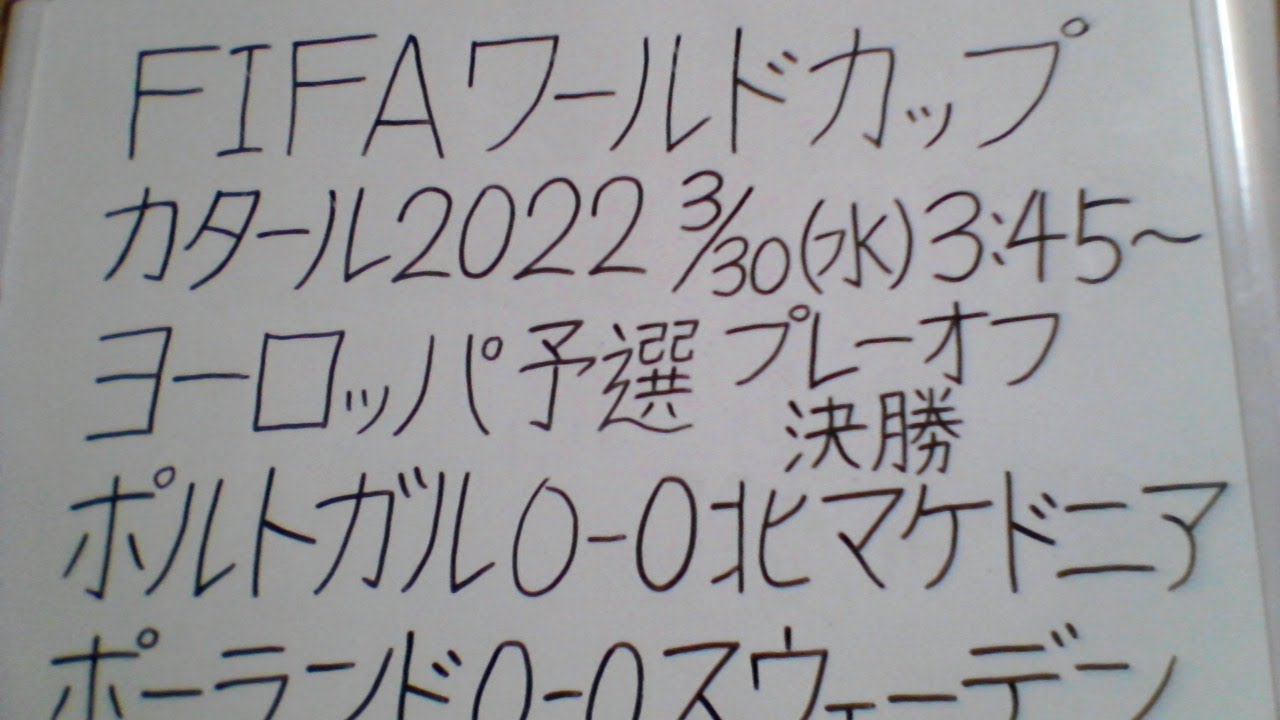 FIFAワールドカップ
カタール2022 3/30(水)3:45~
ヨーロッパ予選 プレーオフ
決勝
ポルトガル0-0北マケドニア
ポーランド0-0スウェーデン